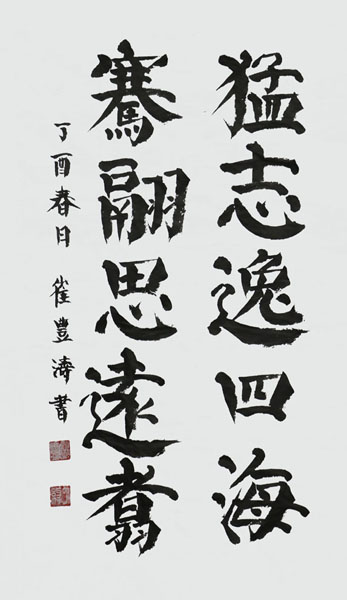 猛志逸四海
騫翮思遠翥
丁酉春日 崔豐濤書